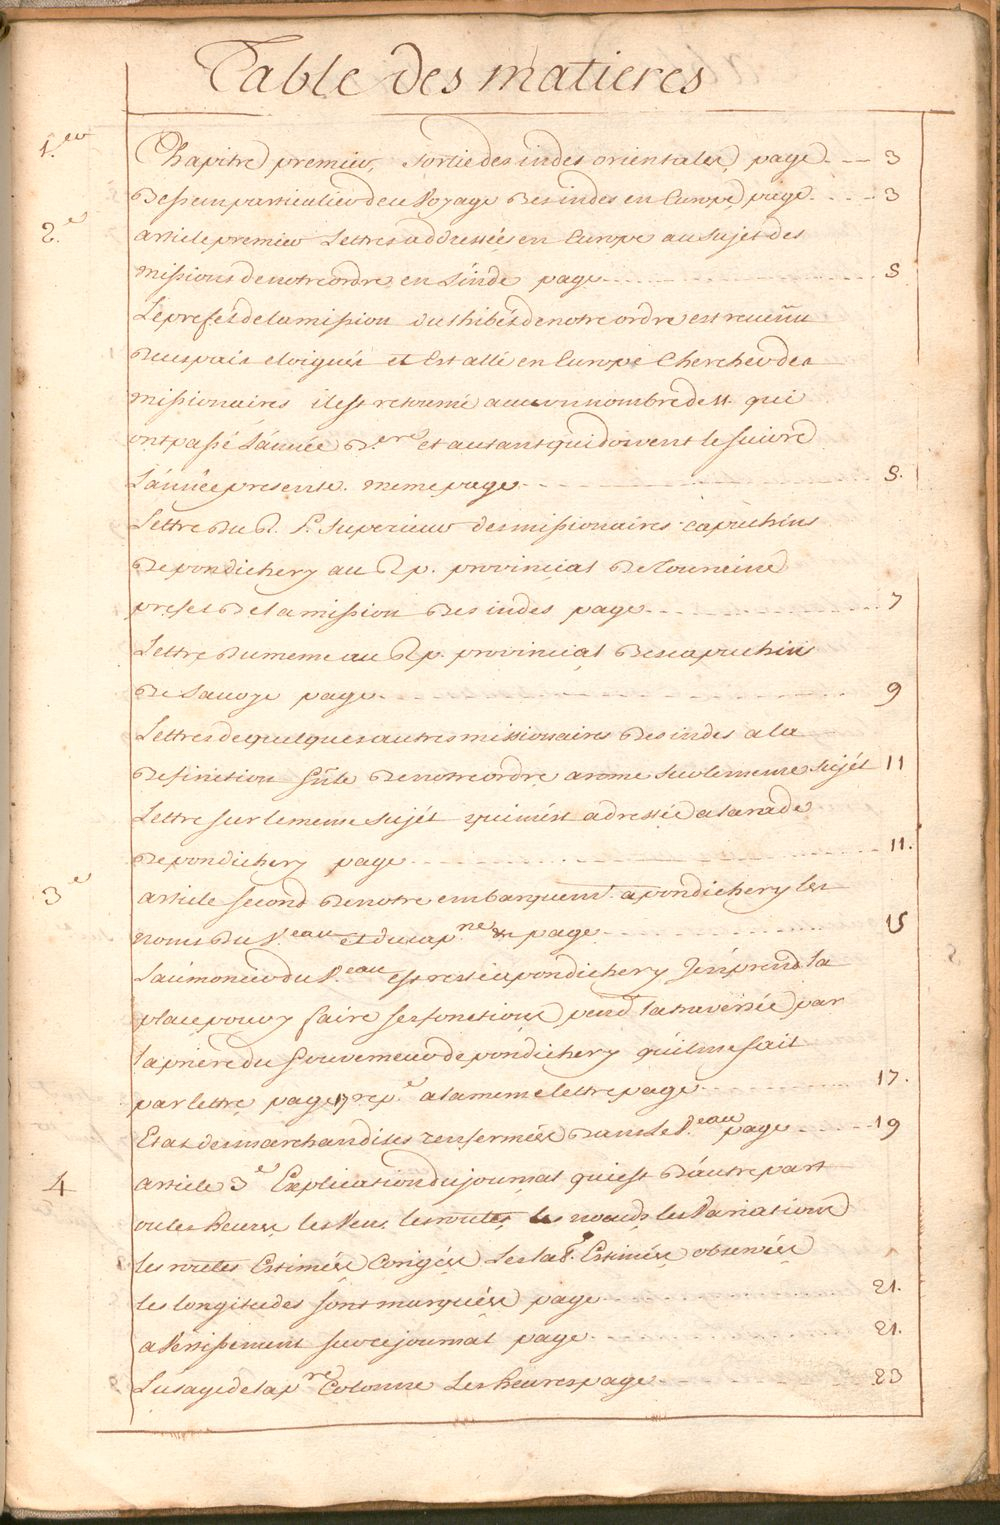 Table des matieres
1.er Chapitre premier, sortie des indes orientales page - - - 3
Dessein particulier de ce Voyage des indes en Europe page - - - 3
2.e article premier Lettres addressées en Europe au sujet des
missions de notre ordre en L'inde page - - - 5
Le prefét de la mission du thibét de notre ordre est revenu
de ces païs eloignés et Est allé en Europe Chercher des
missionaires il est retourné avec un nombre de 11 qui
ont passé L'année D.ere et autant qui doivent le suivre
L'année presente. meme page - - - 5.
Lettre du R. P. Superieur des missionaires capuchins
de pondichery au R p. provincial de Toureine
prefet de la mission des indes page - - - 7
Lettre du meme au R p. provincial des capuchins
de Savoye page - - - 9
Lettres de quelques autres missionaires des indes a la
definition gñle de notre ordre a rome sur le meme sujét 11
Lettre sur le meme sujét qui m'est adressée a la rade
de pondichery page - - - 11.
3e article second de notre embarquemt. a pondichery les
noms du V.eau et du cap.ne page - - - 15
L'aumonier du V.eau est resté a pondichery J'en prend la
place pour y faire ses fonctions pend.t la traversée par
la priere du Gouverneur de pondichery qu'il me fait
par lettre page 17 rep.e a la meme lettre page - - - 17.
Etat des marchandises renfermées dans le V.eau page - - - 19
4 article 3e Explication du journal qui est d'autre part
ou les heures les Vens, les routes, les noeuds, les Variations
les routes Estimées Corigées Les lat. Estimées observées
les longitudes sont marquées page - - - 21.
avertissement sur ce journal page - - - 21.
L'usage de la p.re Colonne Les heures page - - - 23